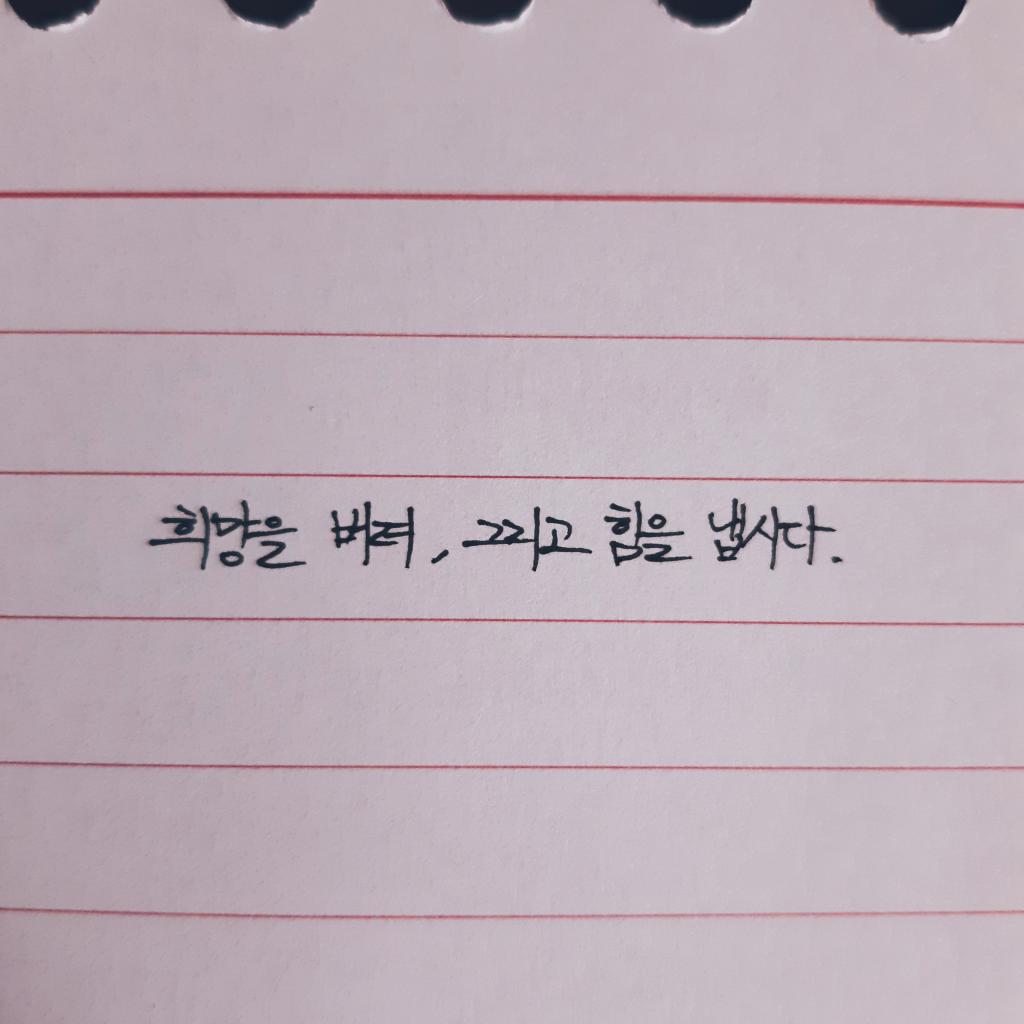 희망을 버려, 그리고 힘을 냅시다.